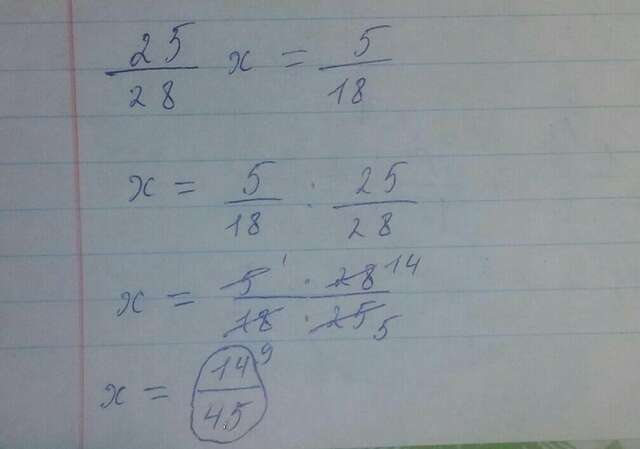 25/28 x = 5/18
x = 5/18 : 25/28
x = 5 1 · 28 14 / 18 9 · 25 5
x = 14/45